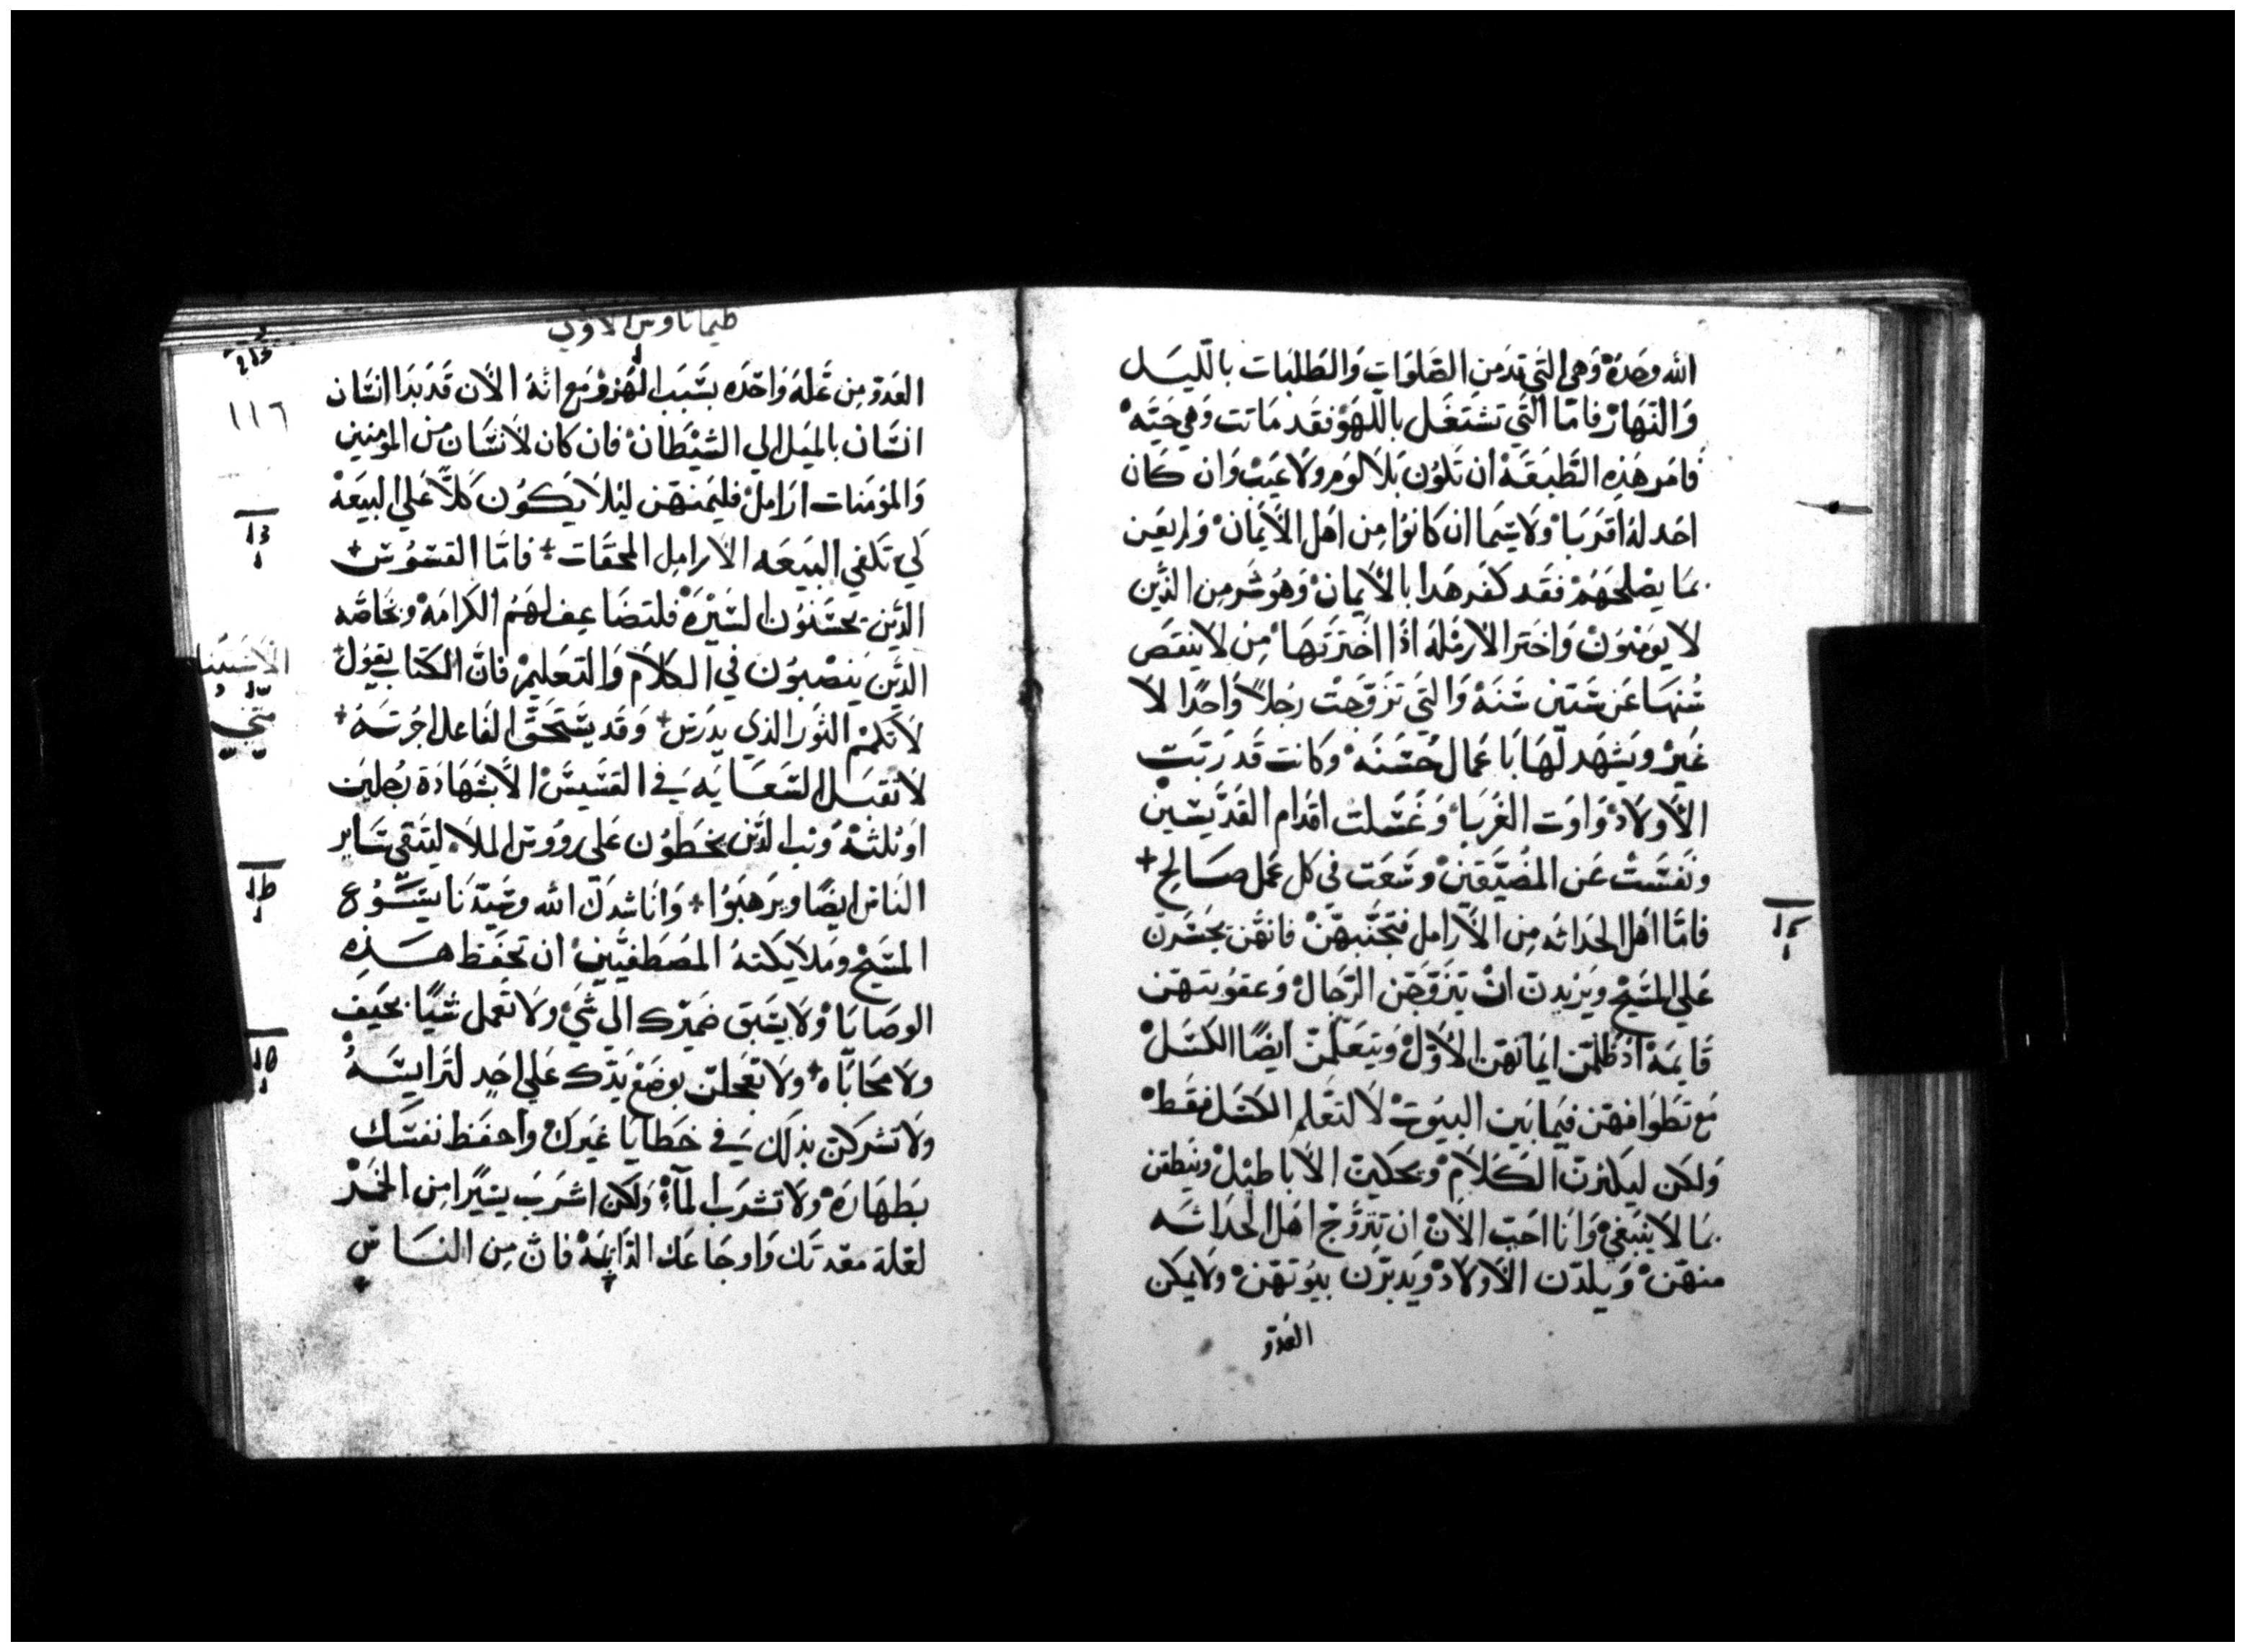 الله وحده وهي التي تدمن الصلوات والطلبات بالليل
والنهار فاما التي تشتغل باللهو فقد ماتت وهي حيه
فامر هذه الطبقه ان تكون بلا لوم ولا عيب وان كان
احد له اقربا ولا سيما ان كانوا من اهل الايمان ولم يعن
بما يصلحهم فقد كفر هدا بالايمان وهو شر من الذين
لا يومنون واختر الارمله اذا اخترتها من لا ينقص
سنها عن ستين سنه والتي تزوجت رجلاً واحدًا لا
غير ويشهد لها باعمال حسنه وكانت قد ربت
الاولاد واوت الغربا وغسلت اقدام القديسين
ونفست عن المضيقين وسعت في كل عمل صالح
فاما اهل الحداثه من الارامل فتجنبهن فانهن يجسرن
علي المسيح ويريدن ان يتزوجن الرجال وعقوبتهن
قايمة اذ ظلمن ايمانهن الاول ويتعلمن ايضًا الكسل
مع تطوافهن فيما بين البيوت لا لتعلم الكسل فقط
ولكن ليكثرن الكلام ويحكين الاباطيل وينطقن
بما لا ينبغي وانا احب الان ان تتزوج اهل الحداثه
منهن ويلدن الاولاد ويدبرن بيوتهن ولا يمكن
العدو
طيماتاوس الاولي
١١٦
العدو من عله واحده بسبب الهزو مع انه الان قد بدا انسان
انسان بالميل الي الشيطان فان كان لانسان من المومنين
والمومنات ارامل فليمنهن ليلا يكون كلاً علي البيعه
كي تكفي البيعه الارامل المحقات فاما القسوس
الذين يحسنون السيرة فلتضاعف لهم الكرامه وبخاصه
الذين ينصبون في الكلام والتعليم فان الكتاب يقول
لا تكمم الثور الذي يدرس وقد يستحق الفاعل اجرته
لا تقبل السعايه في القسيس الا بشهادة رجلين
او ثلثه ونب الذين يخطون على رووس الملا ليتقي ساير
الناس ايضًا ويرهبوا وانا شدك الله وسيدنا يسوع
المسيح وملايكته المصطفيين ان تحفظ هذه
الوصايا ولا يسبق ضميرك الي شي ولا تعمل شيًا بحيف
ولا محاباه ولا تعجلن بوضع يدك علي احد لتراييسه
ولا تشركن بذلك في خطايا غيرك واحفظ نفسك
بطهاره ولا تشرب الماء ولكن اشرب يسيرًا من الخمر
لعلة معدتك واوجاعك الدايمه فان من الناس